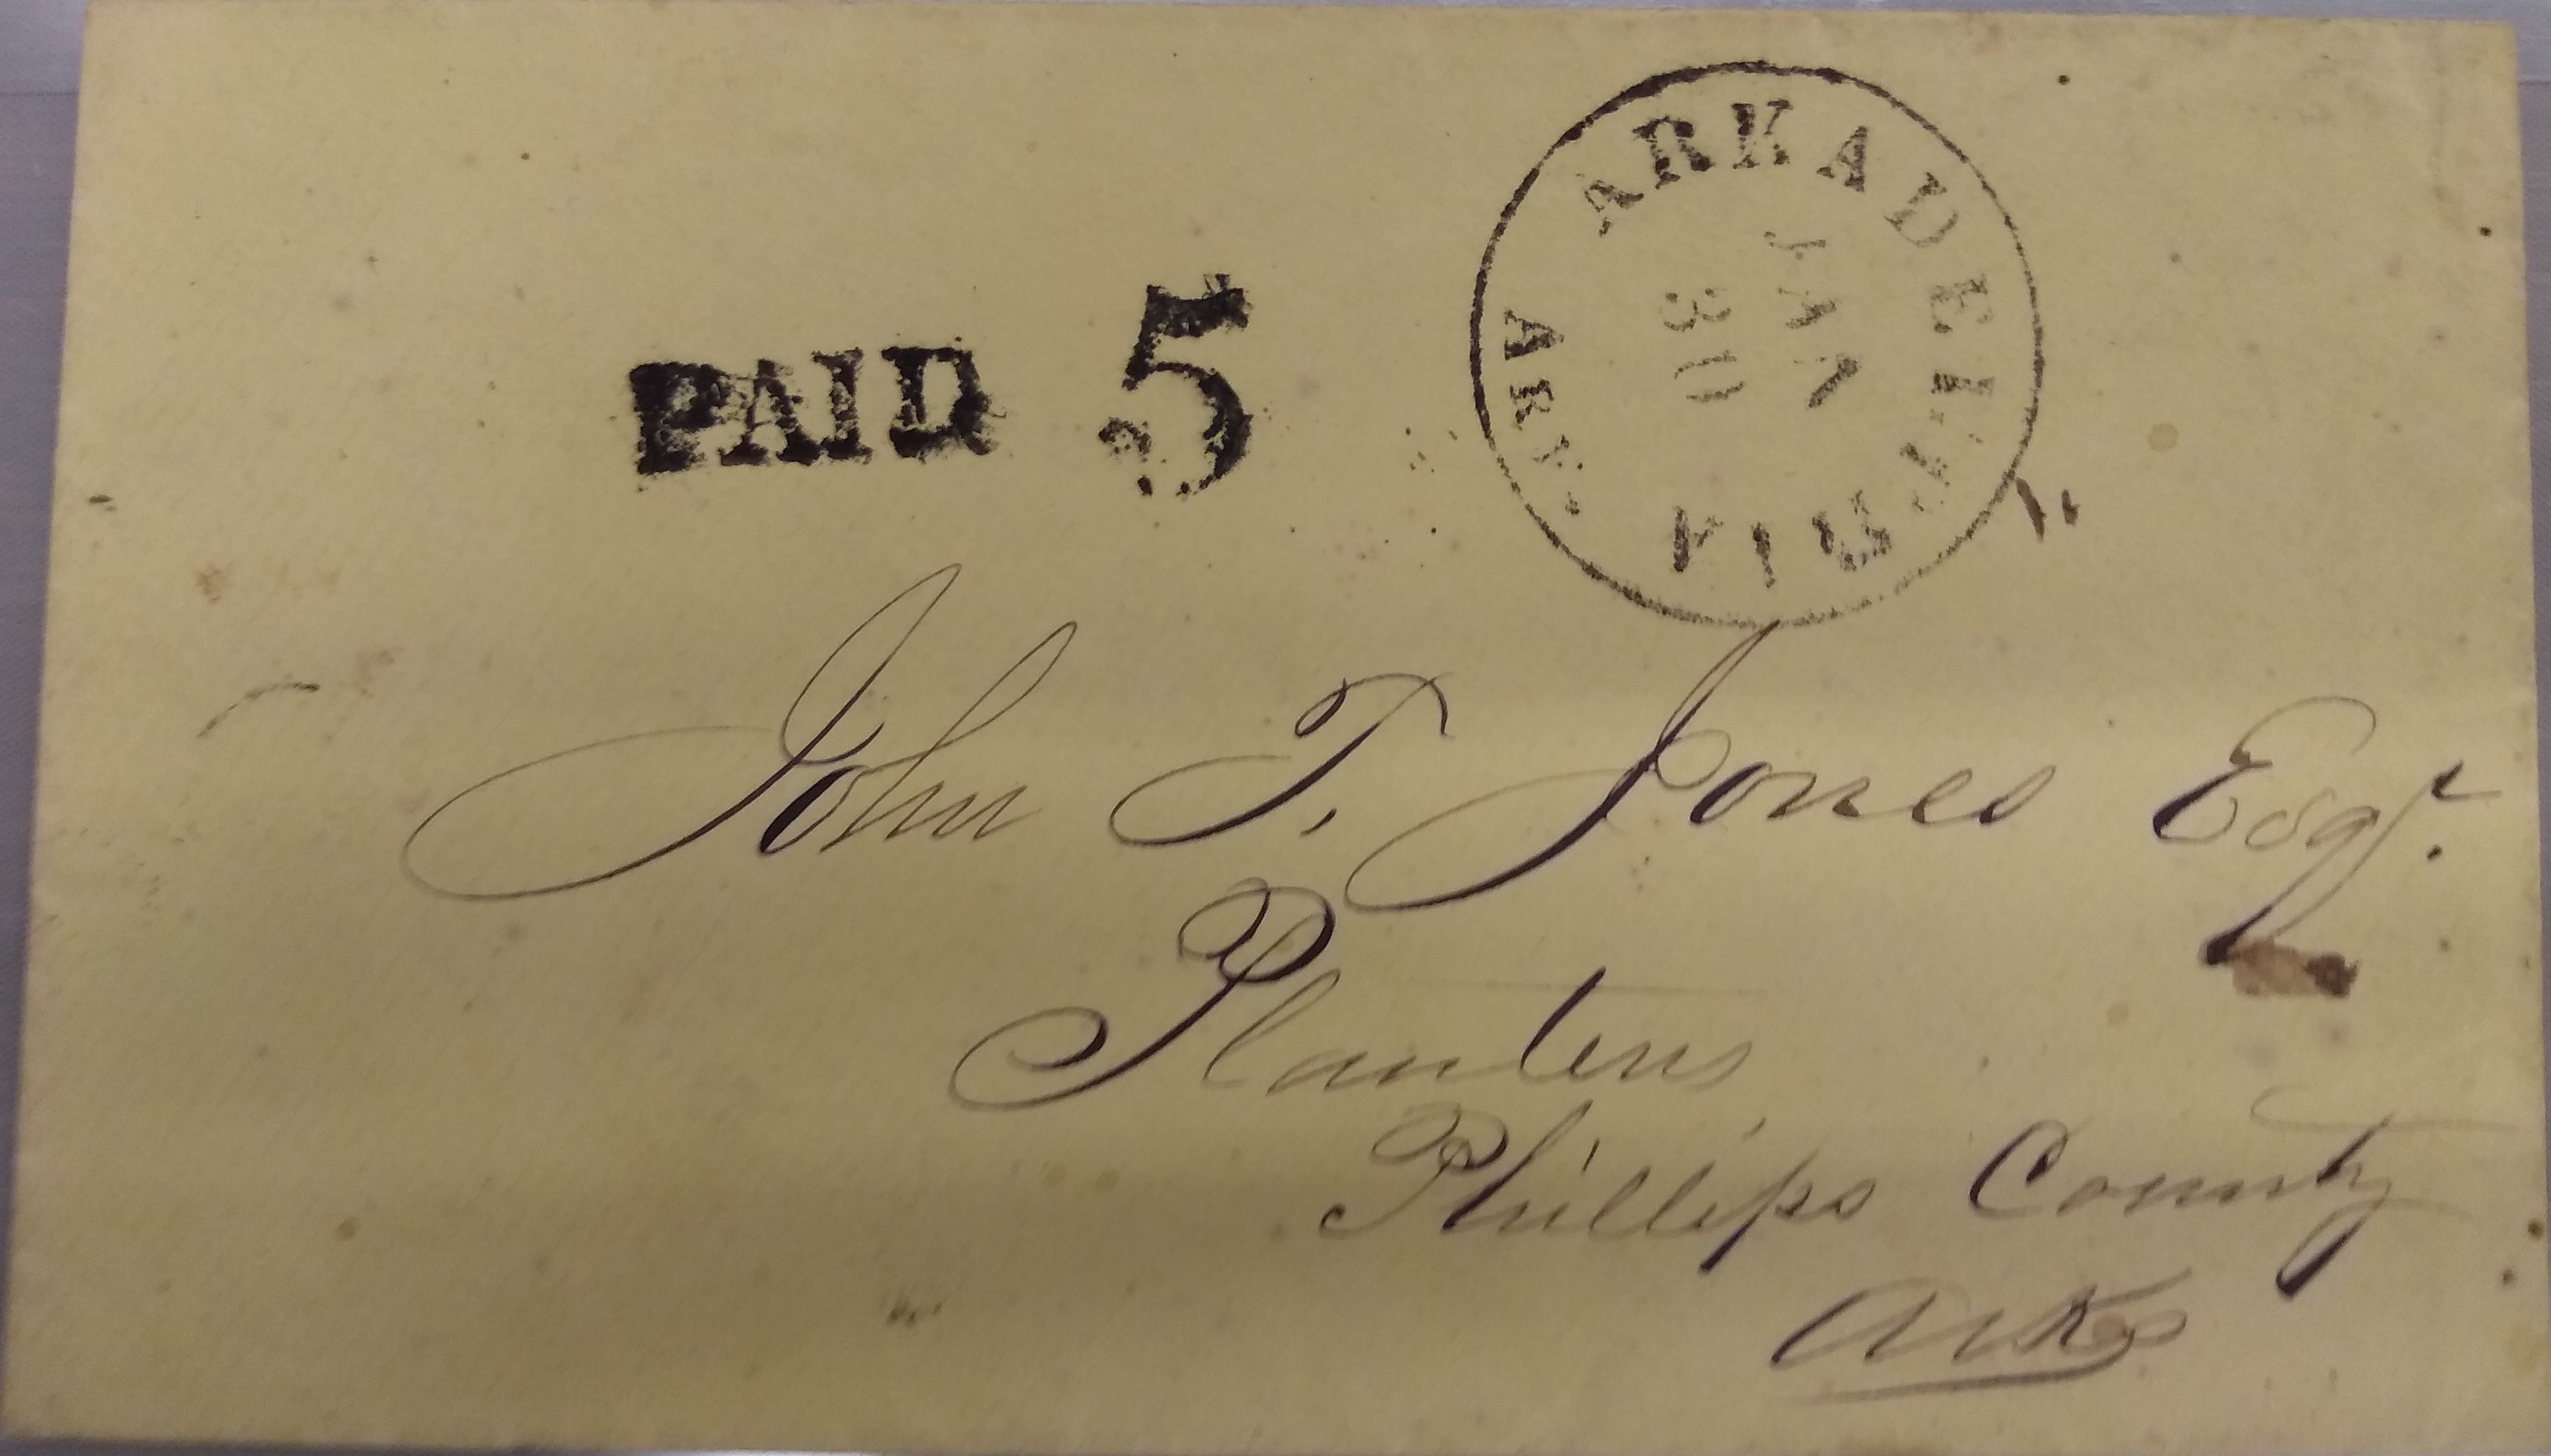 PAID 5
ARKADELPHIA
ARK.
JAN
30
John T. Jones Esqr.
Planters
Phillips County
Arks